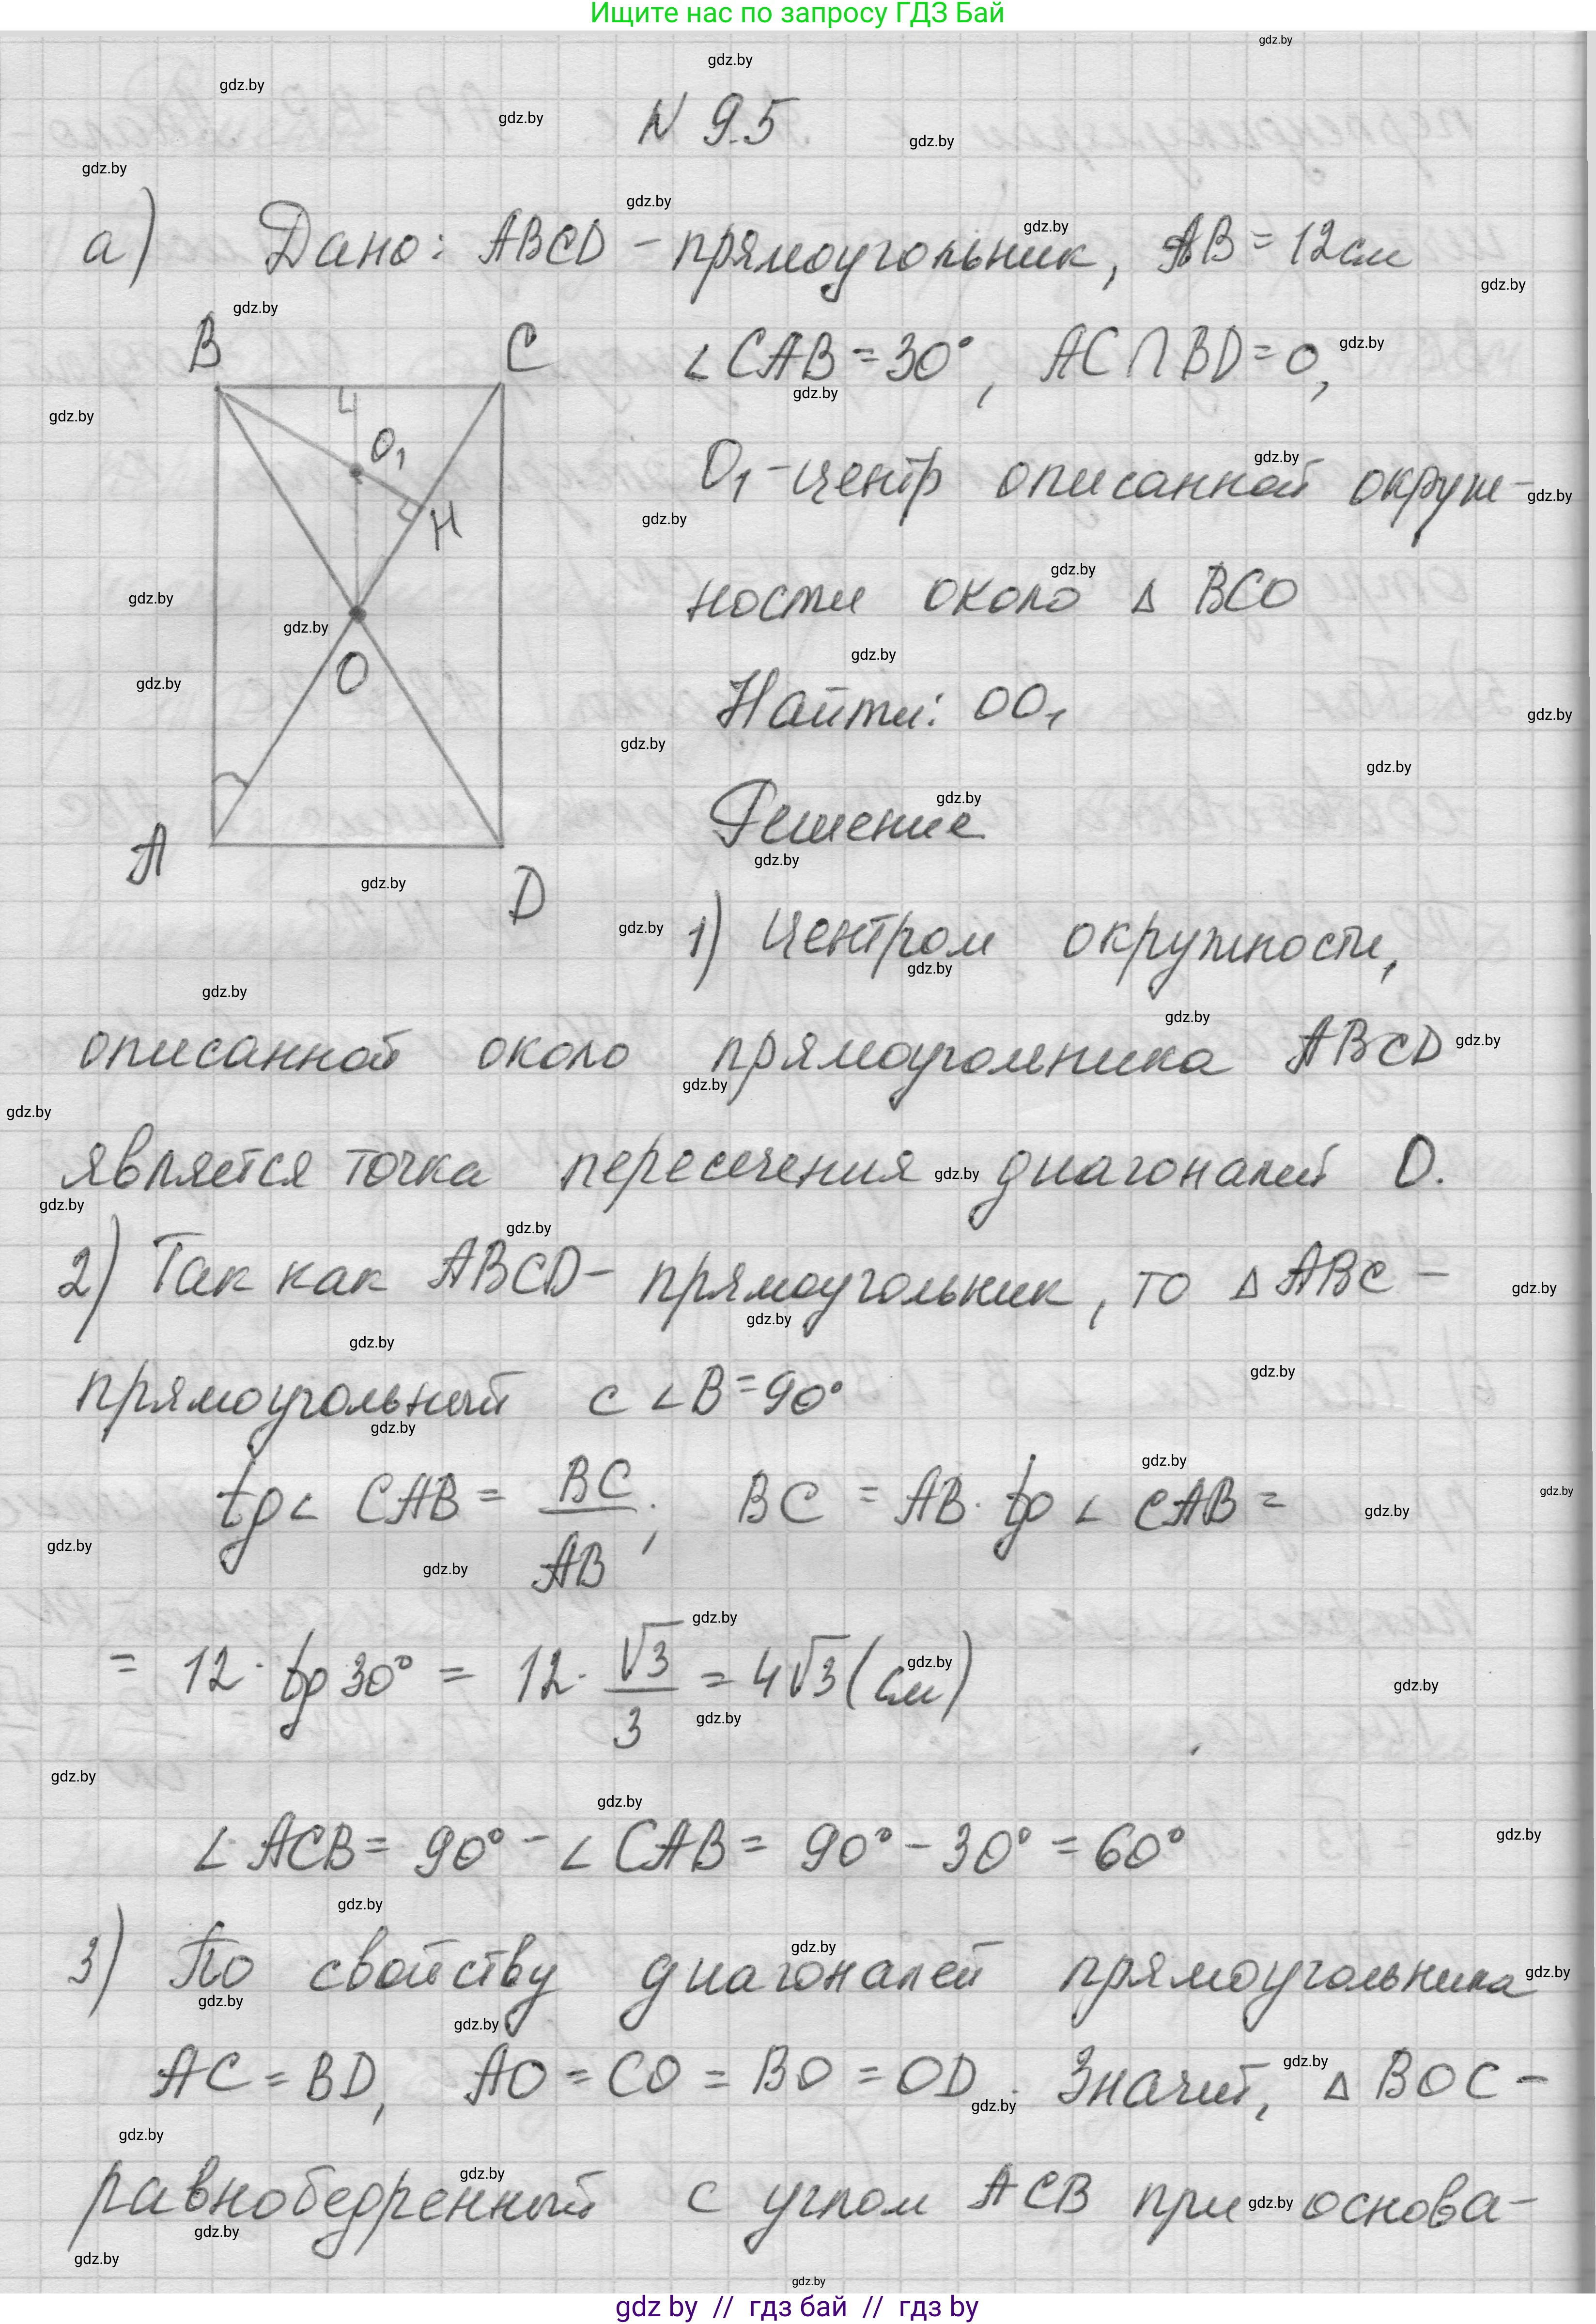 Ищите нас по запросу ГДЗ Бай
N 9.5
а) Дано: ABCD - прямоугольник, AB = 12см
∠CAB = 30°, AC∩BD = O,
O₁ - центр описанной окруж-
ности около △ BCO
Найти: OO₁
Решение
B C
O₁
H
O
A D
1) Центром окружности,
описанной около прямоугольника ABCD
является точка пересечения диагоналей O.
2) Так как ABCD - прямоугольник, то △ABC -
прямоугольный с ∠B = 90°
tg∠CAB = BC/AB; BC = AB · tg∠CAB =
= 12 · tg30° = 12 · √3/3 = 4√3 (см)
∠ACB = 90° - ∠CAB = 90° - 30° = 60°
3) По свойству диагоналей прямоугольника
AC = BD, AO = CO = BO = OD. Значит, △BOC -
равнобедренный с углом ACB при основа-
gdz.by
gdz by // гдз бай // гдз by